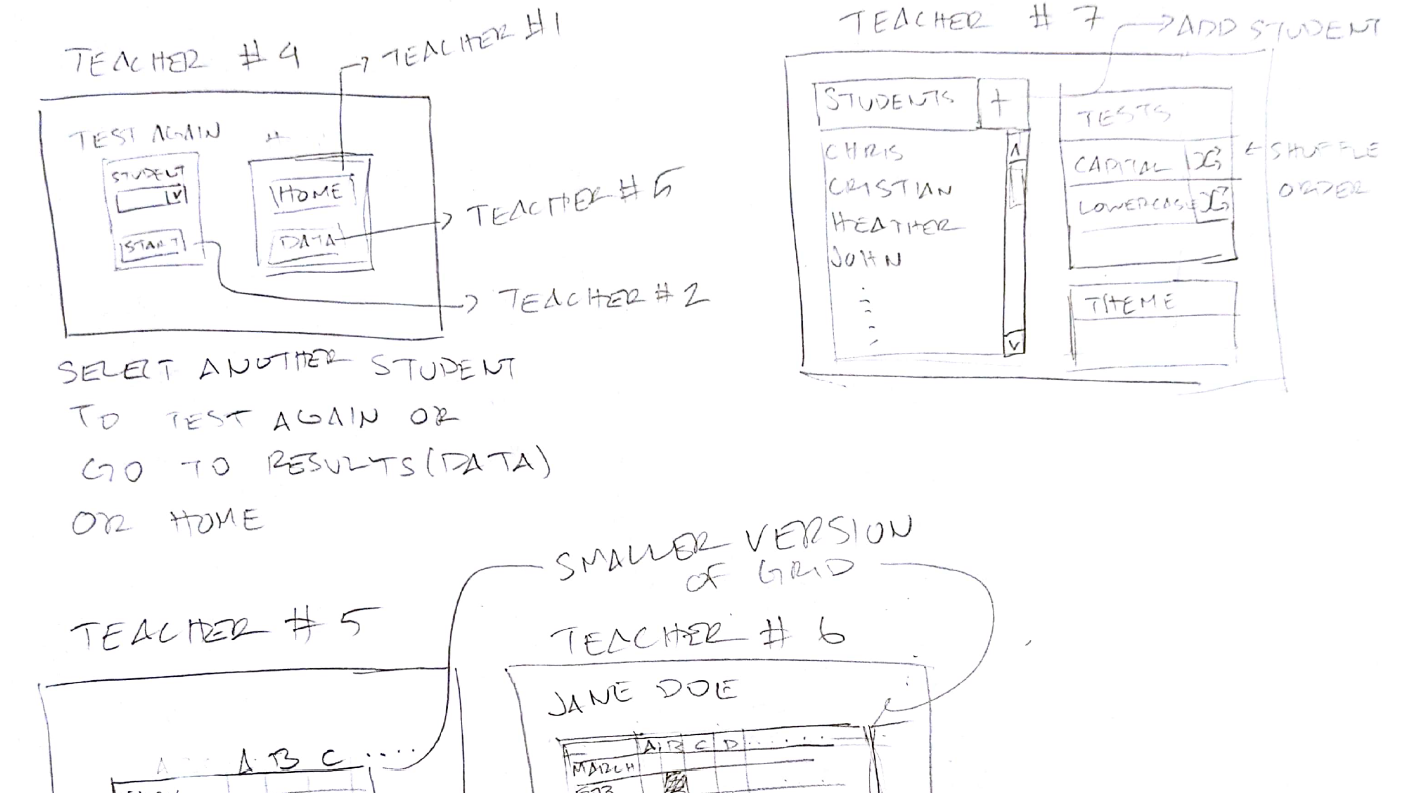 TEACHER # 4
TEACHER #1
TEST AGAIN
STUDENT
V
START
HOME
DATA
TEACHER # 5
TEACHER # 2
SELECT ANOTHER STUDENT
TO TEST AGAIN OR
GO TO RESULTS (DATA)
OR HOME
TEACHER # 7
ADD STUDENT
STUDENTS +
CHRIS
CRISTIAN
HEATHER
JOHN
TESTS
CAPITAL
LOWERCASE
SHUFFLE
ORDER
THEME
SMALLER VERSION
OF GRID
TEACHER # 5
A B C ....
TEACHER # 6
JANE DOE
A B C D .......
MARCH